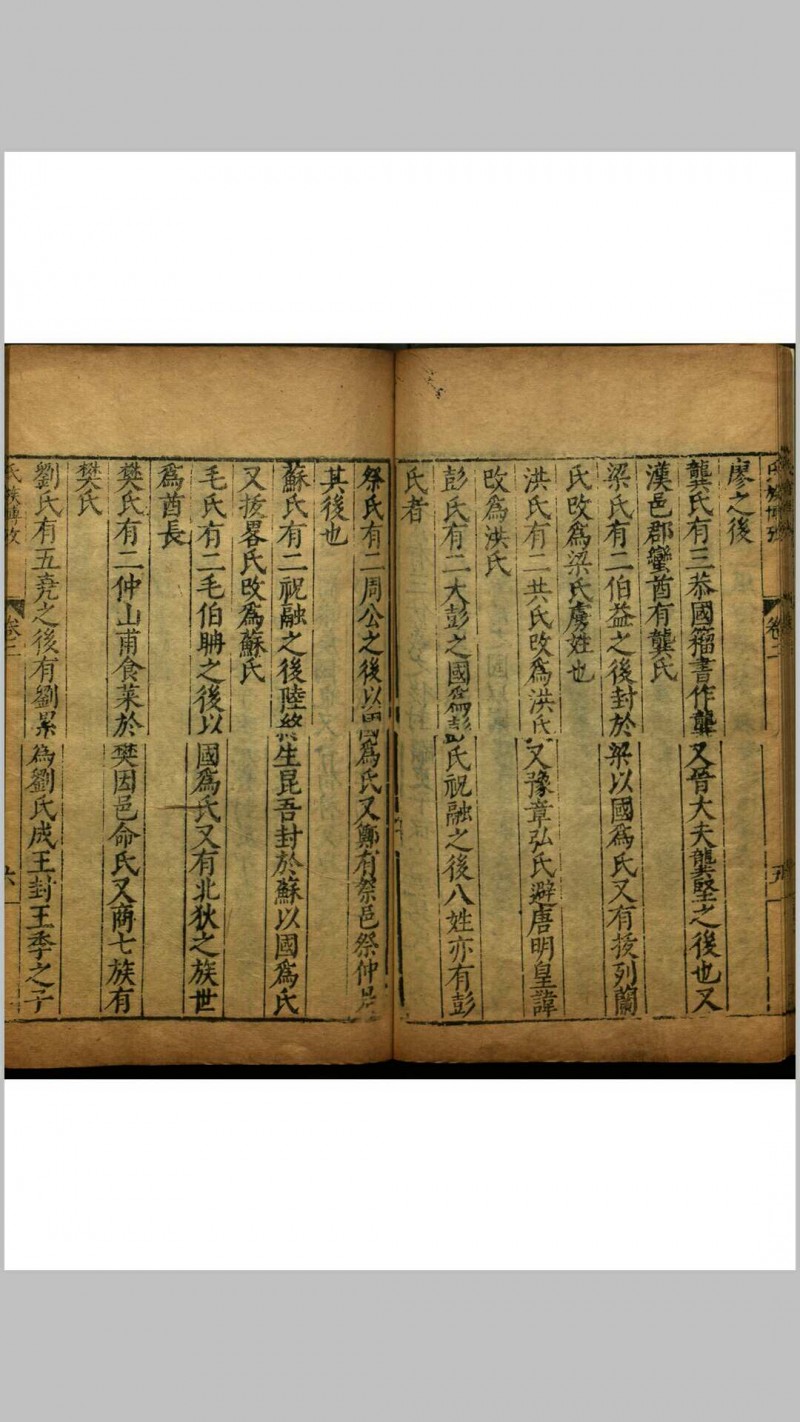 廖之後
龔氏有三恭國籀書作龔又晉大夫龔堅之後也又
漢邑郡蠻酋有龔氏
梁氏有二伯益之後封於梁以國爲氏又有㧞列蘭
氏改爲梁氏虜姓也
洪氏有二共氏改爲洪氏又豫章弘氏避唐明皇諱
改爲洪氏
彭氏有二大彭之國爲彭氏祝融之後八姓亦有彭
氏者
祭氏有二周公之後以國爲氏又鄭有祭邑祭仲是
其後也
蘇氏有二祝融之後陸終生昆吾封於蘇以國爲氏
又㧞畧氏改爲蘇氏
毛氏有二毛伯聃之後以國爲氏又有北狄之族世
爲酋長
樊氏有二仲山甫食菜於樊因邑命氏又商七族有
樊氏
劉氏有五堯之後有劉累爲劉氏成王封王季之子
氏族博攷 卷二 六